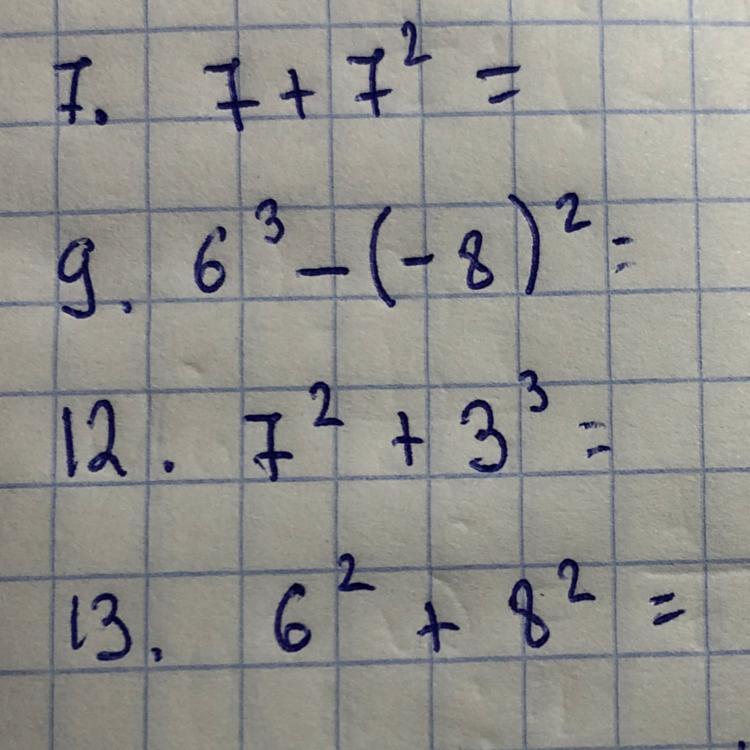 7. 7 + 7² =
9. 6³ - (-8)² =
12. 7² + 3³ =
13. 6² + 8² =